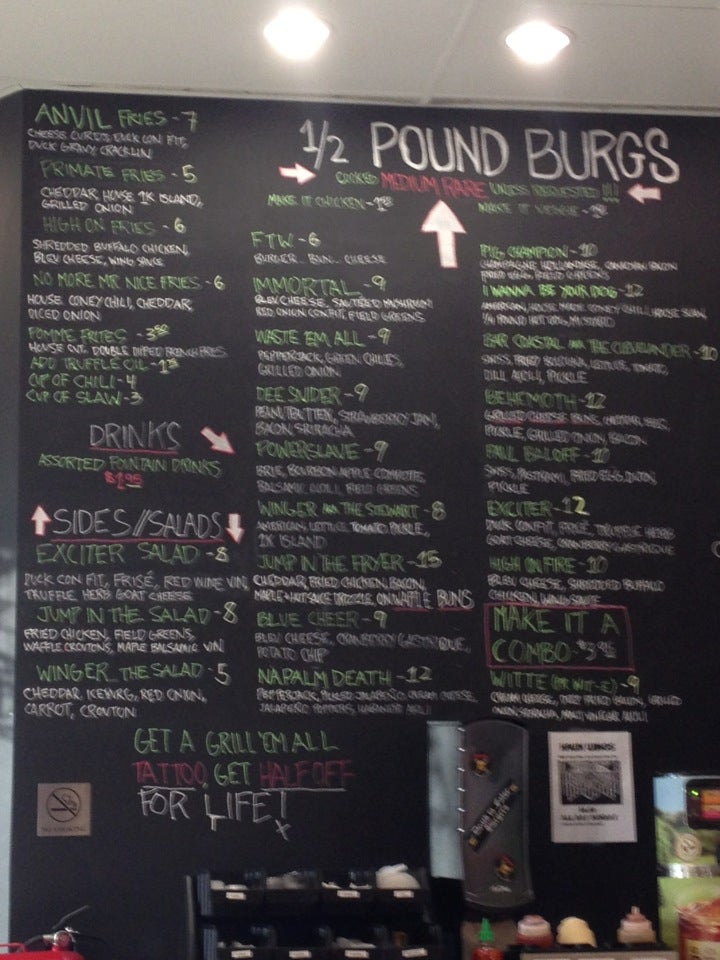 ANVIL FRIES - 7
CHEESE CURDS, DUCK CON FIT,
DUCK GRAVY, CRACKLIN
PRIMATE FRIES - 5
CHEDDAR, HOUSE 1K ISLAND,
GRILLED ONION
HIGH ON FRIES - 6
SHREDDED BUFFALO CHICKEN,
BLEU CHEESE, WING SAUCE
NO MORE MR NICE FRIES - 6
HOUSE CONEY CHILI, CHEDDAR,
DICED ONION
POMME FRITES - 3.50
HOUSE CUT DOUBLE DIPPED FRENCH FRIES
ADD TRUFFLE OIL -
CUP OF CHILI - 4
CUP OF SLAW - 3
DRINKS
ASSORTED FOUNTAIN DRINKS
$1.95
SIDES//SALADS
EXCITER SALAD - 8
DUCK CON FIT, FRISÉ, RED WINE VIN,
TRUFFLE, HERB GOAT CHEESE
JUMP IN THE SALAD - 8
FRIED CHICKEN, FIELD GREENS,
WAFFLE CROUTONS, MAPLE BALSAMIC VIN
WINGER THE SALAD - 5
CHEDDAR, ICEBERG, RED ONION,
CARROT, CROUTON
1/2 POUND BURGS
COOKED MEDIUM RARE UNLESS REQUESTED !!!
MAKE IT CHICKEN -
MAKE IT VEGGIE -
FTW - 6
BURGER... BUN... CHEESE
IMMORTAL - 9
BLEU CHEESE, SAUTEED MUSHROOM
RED ONION CONFIT, FIELD GREENS
WASTE EM ALL - 9
PEPPERJACK, GREEN CHILIES,
GRILLED ONION
DEE SNIDER - 9
PEANUT BUTTER, STRAWBERRY JAM,
BACON, SRIRACHA
POWERSLAVE - 9
BRIE, BOURBON APPLE COMPOTE,
BALSAMIC AIOLI, FIELD GREENS
WINGER AKA THE STEWART - 8
AMERICAN, LETTUCE, TOMATO, PICKLE,
1K ISLAND
JUMP IN THE FRYER - 15
CHEDDAR, FRIED CHICKEN, BACON,
MAPLE + HOT SAUCE DRIZZLE, ON WAFFLE BUNS
BLUE CHEER - 9
BLEU CHEESE, CRANBERRY GASTRIQUE,
POTATO CHIP
NAPALM DEATH - 12
PEPPERJACK, PICKLED JALAPEÑO, CREAM CHEESE,
JALAPEÑO POPPERS, HABANERO AIOLI
PIG CHAMPION - 10
CHAMPAGNE HOLLANDAISE, CANADIAN BACON
FRIED EGG, FIELD GREENS
I WANNA BE YOUR DOG - 12
AMERICAN, HOUSE MADE CONEY CHILI, HOUSE SLAW,
1/4 POUND HOT DOG, MUSTARD
BAR COASTAL AKA THE CLEVELANDER - 10
SWISS, FRIED BOLOGNA, LETTUCE, TOMATO,
DILL AIOLI, PICKLE
BEHEMOTH - 12
GRILLED CHEESE BUNS, CHEDDAR, BBQ,
PICKLE, GRILLED ONION, BACON
PAUL BALOFF - 10
SWISS, PASTRAMI, FRIED EGG, DIJON,
PICKLE
EXCITER - 12
DUCK CONFIT, FRISÉ, TRUFFLE HERB
GOAT CHEESE, CRANBERRY GASTRIQUE
HIGH ON FIRE - 10
BLEU CHEESE, SHREDDED BUFFALO
CHICKEN, WING SAUCE
MAKE IT A
COMBO - $3.95
WITTE (OR WIT-E) - 9
CREAM CHEESE, DEEP FRIED BACON, GRILLED
ONION, SRIRACHA, MALT VINEGAR AIOLI
GET A GRILL 'EM ALL
TATTOO, GET HALF OFF
FOR LIFE!
NO SMOKING